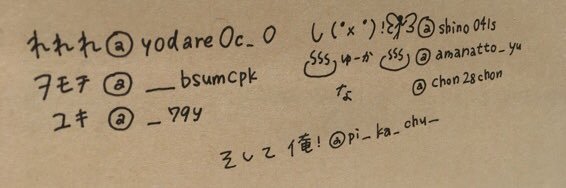 れれれ @ yodare0c_0
ヲモチ @ __bsumcpk
ユキ @ _79y
し(°x°)! @ shino04ls
ゆーか @ amanatto_yu
なよ @ chon28chon
そして俺! @pi_ka_chu_